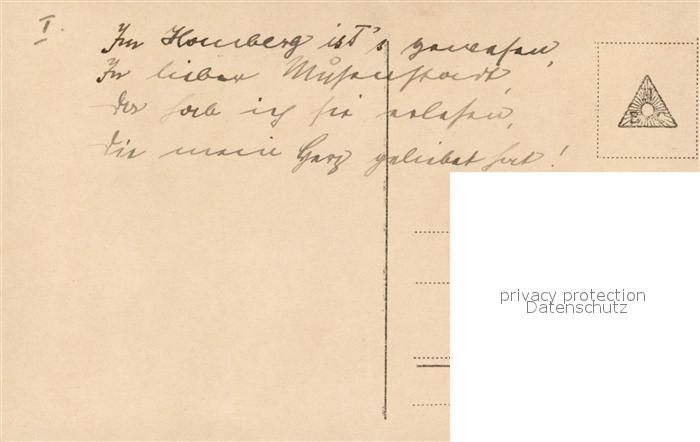 I.
In Homberg ist's gewesen,
In lieber Musenstadt,
Da hab ich sie erlesen,
Die mein Herz geliebet hat!
privacy protection
Datenschutz